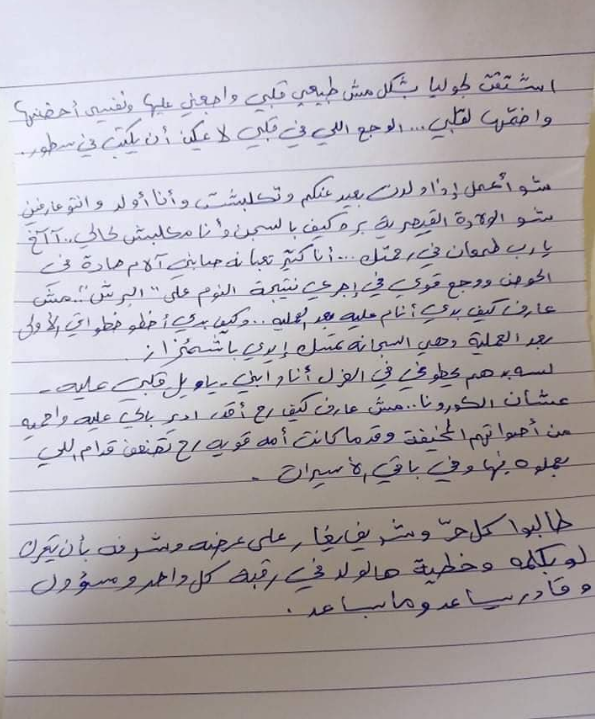 اشتقت لجوليا بشكل مش طبيعي قلبي واجعني عليها ونفسي أحضنها
واضمّها لقلبي... الوجع اللي في قلبي لا يمكن أن يكتب في سطور.
شو أعمل إذا ولدت بعيد عنكم وتكلبشت وأنا أولد وانتو عارفين
شو الولادة القيصرية بره كيف بالسجن وأنا مكلبش لحالي.. آآخ
يا رب طمعان في رحمتك... أنا كثير تعبانه صابني آلام حادة في
الحوض ووجع قوي في إجري نتيجة النوم على "البرش".. مش
عارف كيف بدي أنام عليه بعد العملية.. وكيف بدي أخطو خطواتي الأولى
بعد العملية وهي السجانة تمسك إيدي باشمئزاز.
لسه بدهم يحطوني في العزل أنا وابني - يا ويل قلبي عليه -
عشان الكورونا.. مش عارف كيف رح أقدر ادير بالي عليه واحميه
من أصواتهم المخيفة وقد ما كانت أمه قويه رح تضعف قدام اللي
بعملوه فيها وفي باقي الأسيرات -
طالبوا كل حرّ وشريف يغار على عرضه وشرفه بأن يتحرك
لو بكلمه وخطية هالولد في رقبة كل واحد ومسؤول
وقادر يساعد وما ساعد.